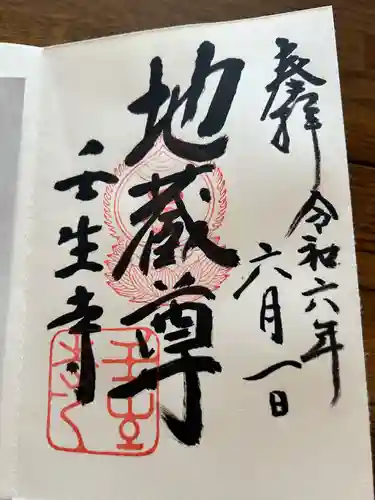 奉拝
令和六年
六月一日
地蔵尊
壬生寺